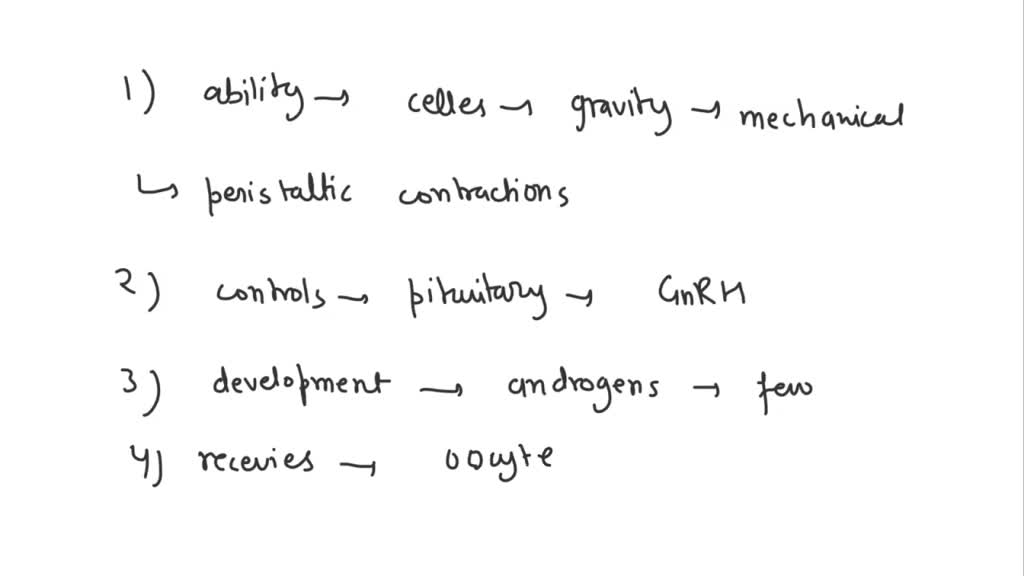 1) ability → celles → gravity → mechanical
↳ peristaltic contractions
2) controls → pituitary → GnRH
3) development → androgens → few
4) recevies → oocyte